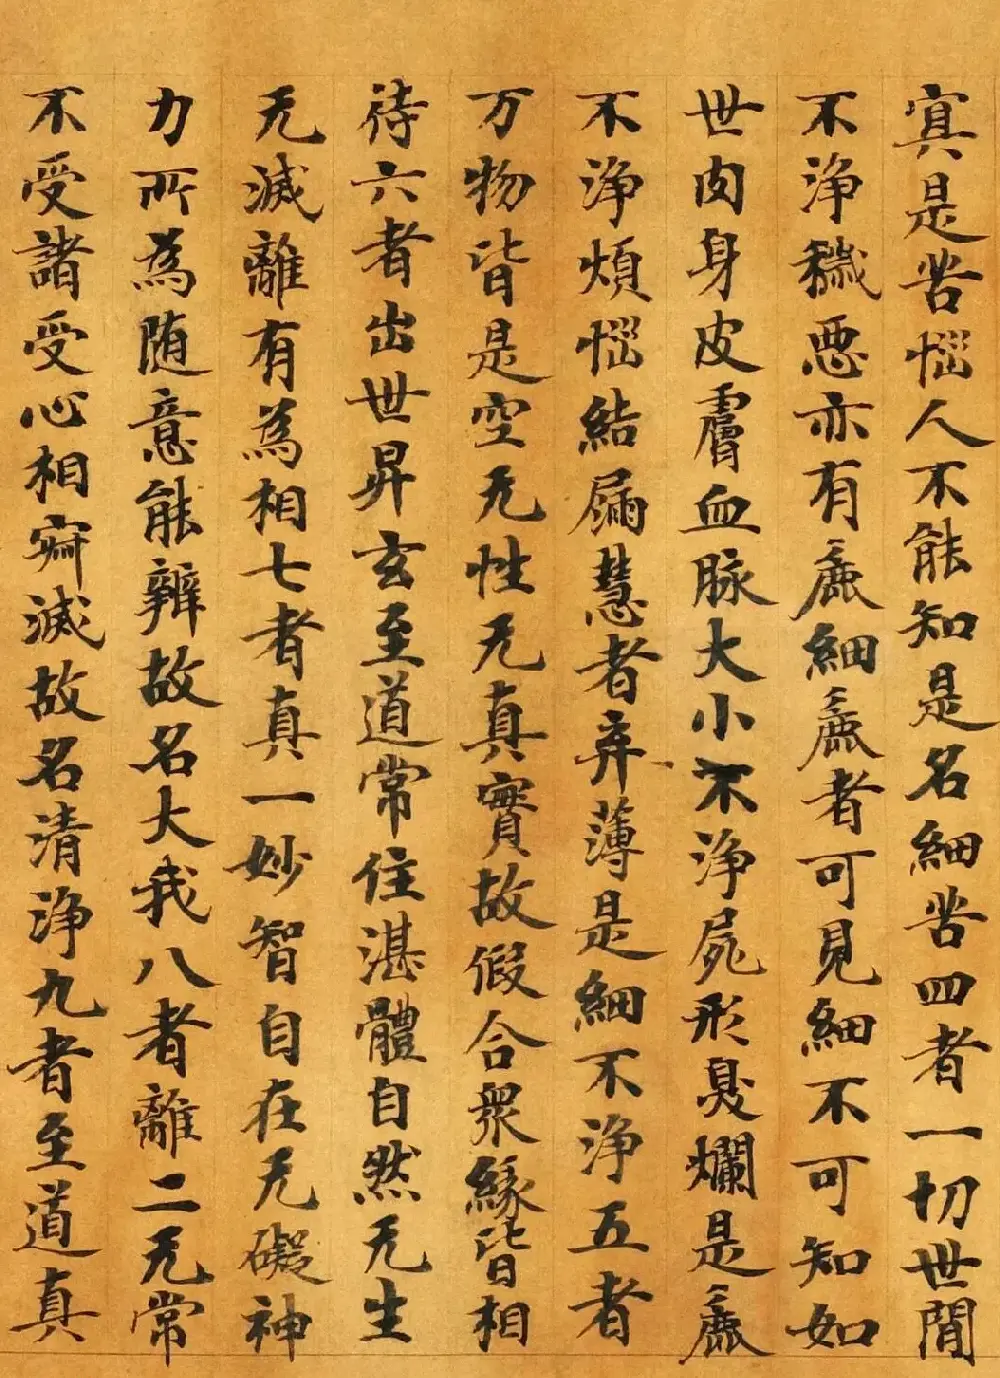 寘是苦惱人不能知是名細苦四者一切世間
不淨穢惡亦有麁細麁者可見細不可知如
世肉身皮膚血脉大小不淨屍形臭爛是麁
不淨煩惱結漏慧者弃薄是細不淨五者
万物皆是空无性无真實故假合衆緣皆相
待六者出世昇玄至道常住湛體自然无生
无滅離有為相七者真一妙智自在无礙神
力所為随意能辦故名大我八者離二无常
不受諸受心相寂滅故名清淨九者至道真